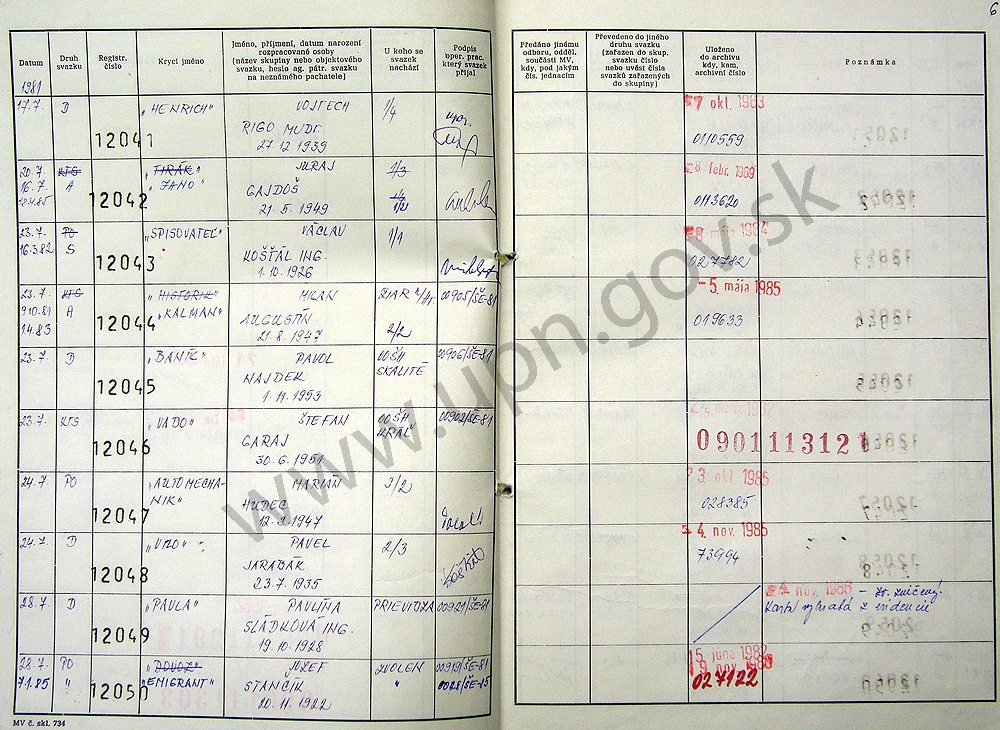 6
Datum
Druh svazku
Registr. číslo
Krycí jméno
Jméno, příjmení, datum narození rozpracované osoby (název skupiny nebo objektového svazku, heslo ag. pátr. svazku na neznámého pachatele)
U koho se svazek nachází
Podpis oper. prac. který svazek přijal
Předáno jinému odboru, odděl. součásti MV, kdy, pod jakým čís. jednacím
Převedeno do jiného druhu svazku (zařazen do skup. svazku číslo nebo uvést čísla svazků zařazených do skupiny)
Uloženo do archivu kdy, kam, archivní číslo
Poznámka
1981
17.7. D 12041 „HENRICH" VOJTECH 1/4
RIGO MUDr.
27.12 1939
7 okt. 1983
0110559
20.7. KTS „TIRÁK" JURAJ 1/3
16.7. A 12042 „JANO" GAJDOŠ 1/2
21.5.1949
8 febr. 1989
0113620
23.7. PO „SPISOVATEĽ" VÁCLAV 1/1
16.3.82 S 12043 KOŠŤÁL ING.
1.10.1926
mája 1984
027782
23.7. KTS „HISTORIK" MILAN ŽIAR n/Hr 00905/ŠE-81
9.10.81 A 12044 „KALMAN" AUGUSTÍN
1.4.83 21.8.1947 2/2
- 5. mája 1985
019633
23.7. D 12045 „BANÍC" PAVOL OOŠH SKALITÉ 00906/ŠE-81
NAJDEK
1.11.1953
23.7. KTS 12046 „VADO" ŠTEFAN OOŠH „KRÁĽ" 00902/ŠE-81
GARAJ
30.6.1951
24. marca
0901113121
24.7. PO 12047 „AUTOMECHANIK" MARIAN 2/2
HUDEC
1947
3. okt. 1985
028385
24.7. D 12048 „VIDO" PAVEL 2/3
JARABÁK
23.7.1935
- 4. nov. 1985
73994
28.7. D 12049 „PAVLA" PAVLÍNA PRIEVIDZA 00921/ŠE-81
SLÁDKOVÁ ING.
19.10.1928
nov. 1986 - zv. zničený.
Karta vybratá z evidencie
28.7. PO „DOVOZ" JOZEF ZVOLEN 00919/ŠE-81
7.1.85 " 12050 „EMIGRANT" STANČÍK "
20.11.1922
15. júna 1982
9. nov. 198
027122
MV č. skl. 734
www.upn.gov.sk